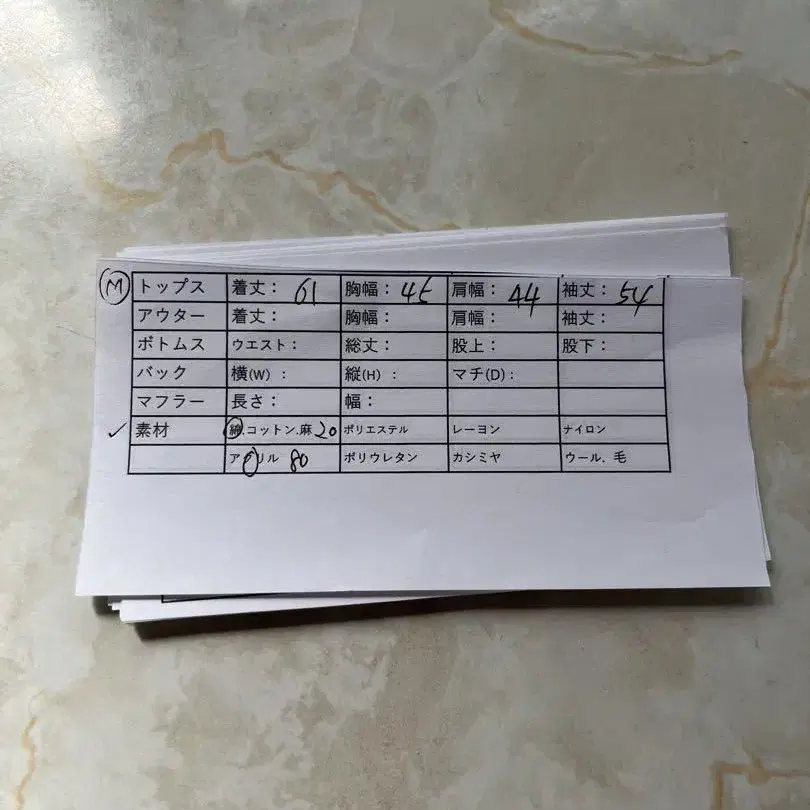 M トップス 着丈: 61 胸幅: 45 肩幅: 44 袖丈: 54
アウター 着丈: 胸幅: 肩幅: 袖丈:
ボトムス ウエスト: 総丈: 股上: 股下:
バック 横(W) : 縦(H) : マチ(D):
マフラー 長さ: 幅:
✓ 素材 綿.コットン.麻 20 ポリエステル レーヨン ナイロン
アクリル 80 ポリウレタン カシミヤ ウール、毛